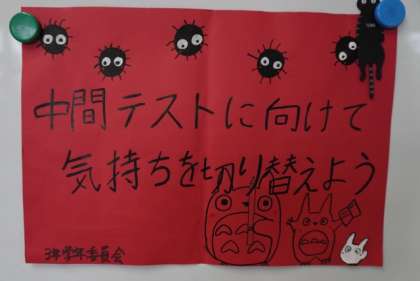 中間テストに向けて
気持ちを切り替えよう
3年学年委員会